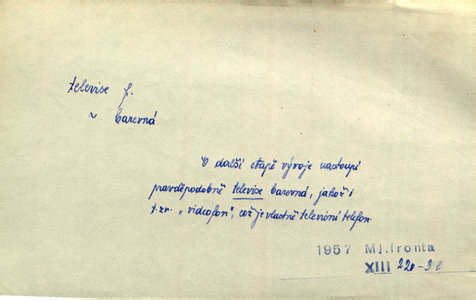 televise f.
~ barevná
V další etapě vývoje nastoupí
pravděpodobně televise barevná, jakož i
t. zv. „videofon", což je vlastně televisní telefon.
1957 Ml. fronta
XIII 220-3